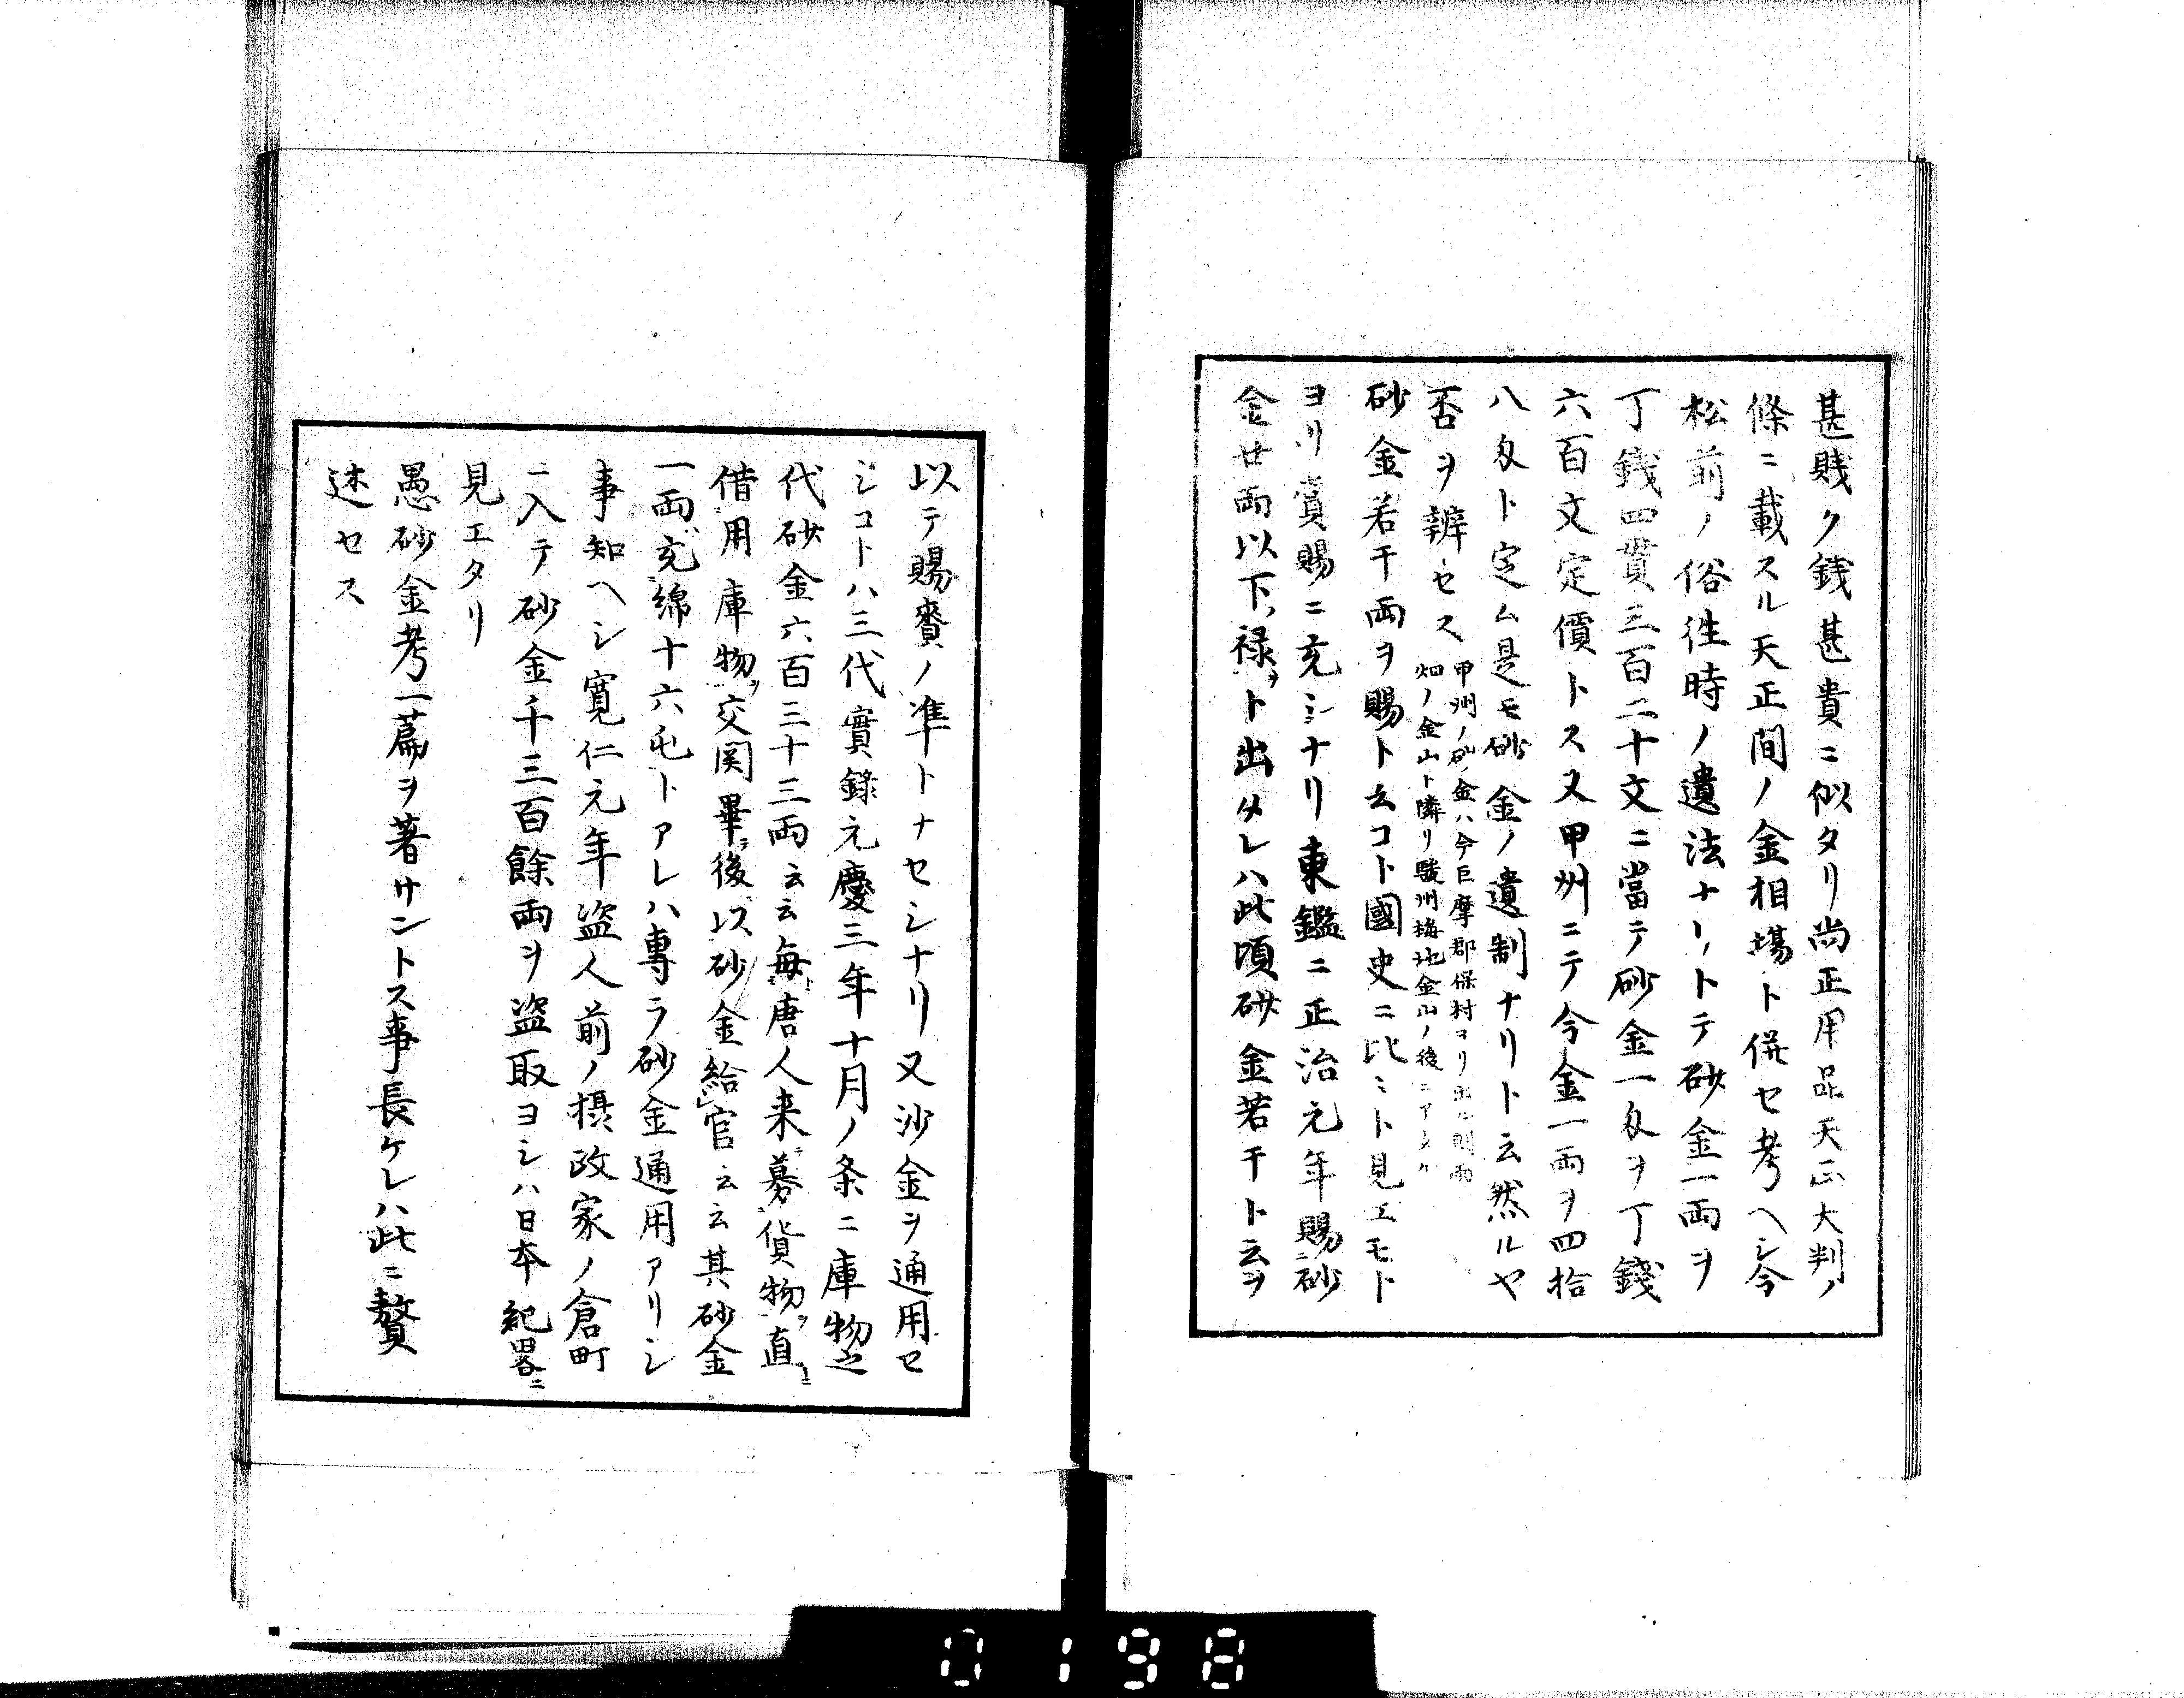 甚賎ク銭甚貴ニ似タリ尚正用品天正大判ノ
條ニ載スル天正間ノ金相塲ト併セ考ヘシ今
松前ノ俗往時ノ遺法ナリトテ砂金一両ヲ
丁錢四貫三百二十文ニ當テ砂金一匁ヲ丁錢
六百文定價トス又甲州ニテ今金一両ヲ四拾
八匁ト定ム是モ砂金ノ遺制ナリト云然ルヤ
否ヲ辨セス
甲州ノ砂金ハ今巨摩郡保村ヨリ出ル則雨
畑ノ金山ト隣リ駿州梅地金山ノ後ニアタル
砂金若干両ヲ賜ト云コト國史ニ比ミト見エモト
ヨリ賞賜ニ充シナリ東鑑ニ正治元年賜砂
金廿両以下禄ヲト出タレハ此頃砂金若干ト云ヲ
以テ賜賚ノ準トナセシナリ又沙金ヲ通用セ
シコトハ三代實錄元慶三年十月ノ条ニ庫物之
代砂金六百三十三両云云毎唐人来募貨物ヲ直ニ
借用庫物ヲ交関畢後以砂金給官云云其砂金
一両充綿十六屯トアレハ專ラ砂金通用アリシ
事知ヘシ寛仁元年盗人前ノ摂政家ノ倉町
ニ入テ砂金千三百餘両ヲ盗取ヨシハ日本紀畧ニ
見エタリ
愚砂金考一萹ヲ著サントス事長ケレハ此ニ贅
述セス
0198